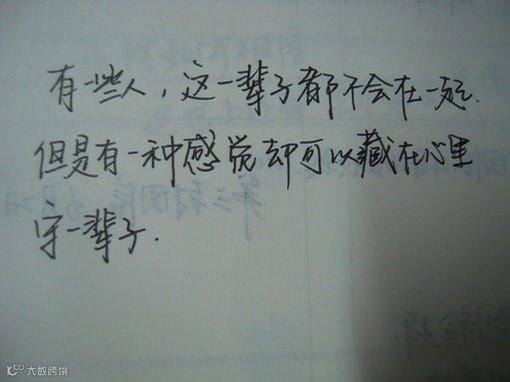 有一些人，这一辈子都不会在一起.
但是有一种感觉却可以藏在心里
守一辈子.
大数跨境